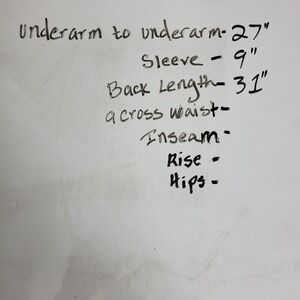 underarm to underarm- 27"
Sleeve - 9"
Back Length- 31"
across waist-
Inseam -
Rise -
Hips -